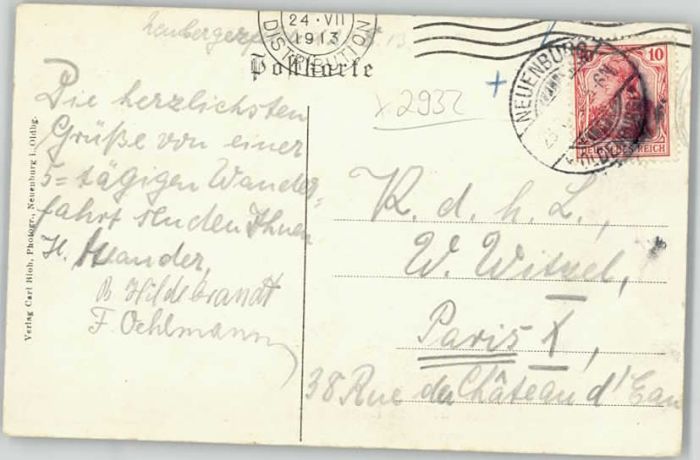 24·VII
1913
DISTRIBUTION
Postkarte
x 2932
NEUENBURG
10
REICH
Die herzlichsten
Grüße von einer
5-tägigen Wander-
fahrt senden Ihnen
H.
B. Hildebrandt
F. Oehlmann
K. d. h. L.,
W. Witzel,
Paris X,
38 Rue du Château d'Eau
Verlag Carl Bloh, Photogr., Neuenburg i. Oldbg.